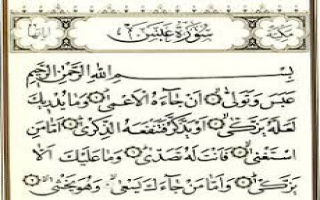 مكية سُورَةُ عَبَسَ
بِسْمِ اللهِ الرَّحْمٰنِ الرَّحِيْمِ
عَبَسَ وَتَوَلّٰى ۝ اَنْ جَآءَهُ الْاَعْمٰى ۝ وَمَا يُدْرِيْكَ
لَعَلَّهُ يَزَّكّٰى ۝ اَوْ يَذَّكَّرُ فَتَنْفَعَهُ الذِّكْرٰى ۝ اَمَّا مَنِ
اسْتَغْنٰى ۝ فَاَنْتَ لَهُ تَصَدّٰى ۝ وَمَا عَلَيْكَ اَلَّا
يَزَّكّٰى ۝ وَاَمَّا مَنْ جَآءَكَ يَسْعٰى ۝ وَهُوَ يَخْشٰى ۝